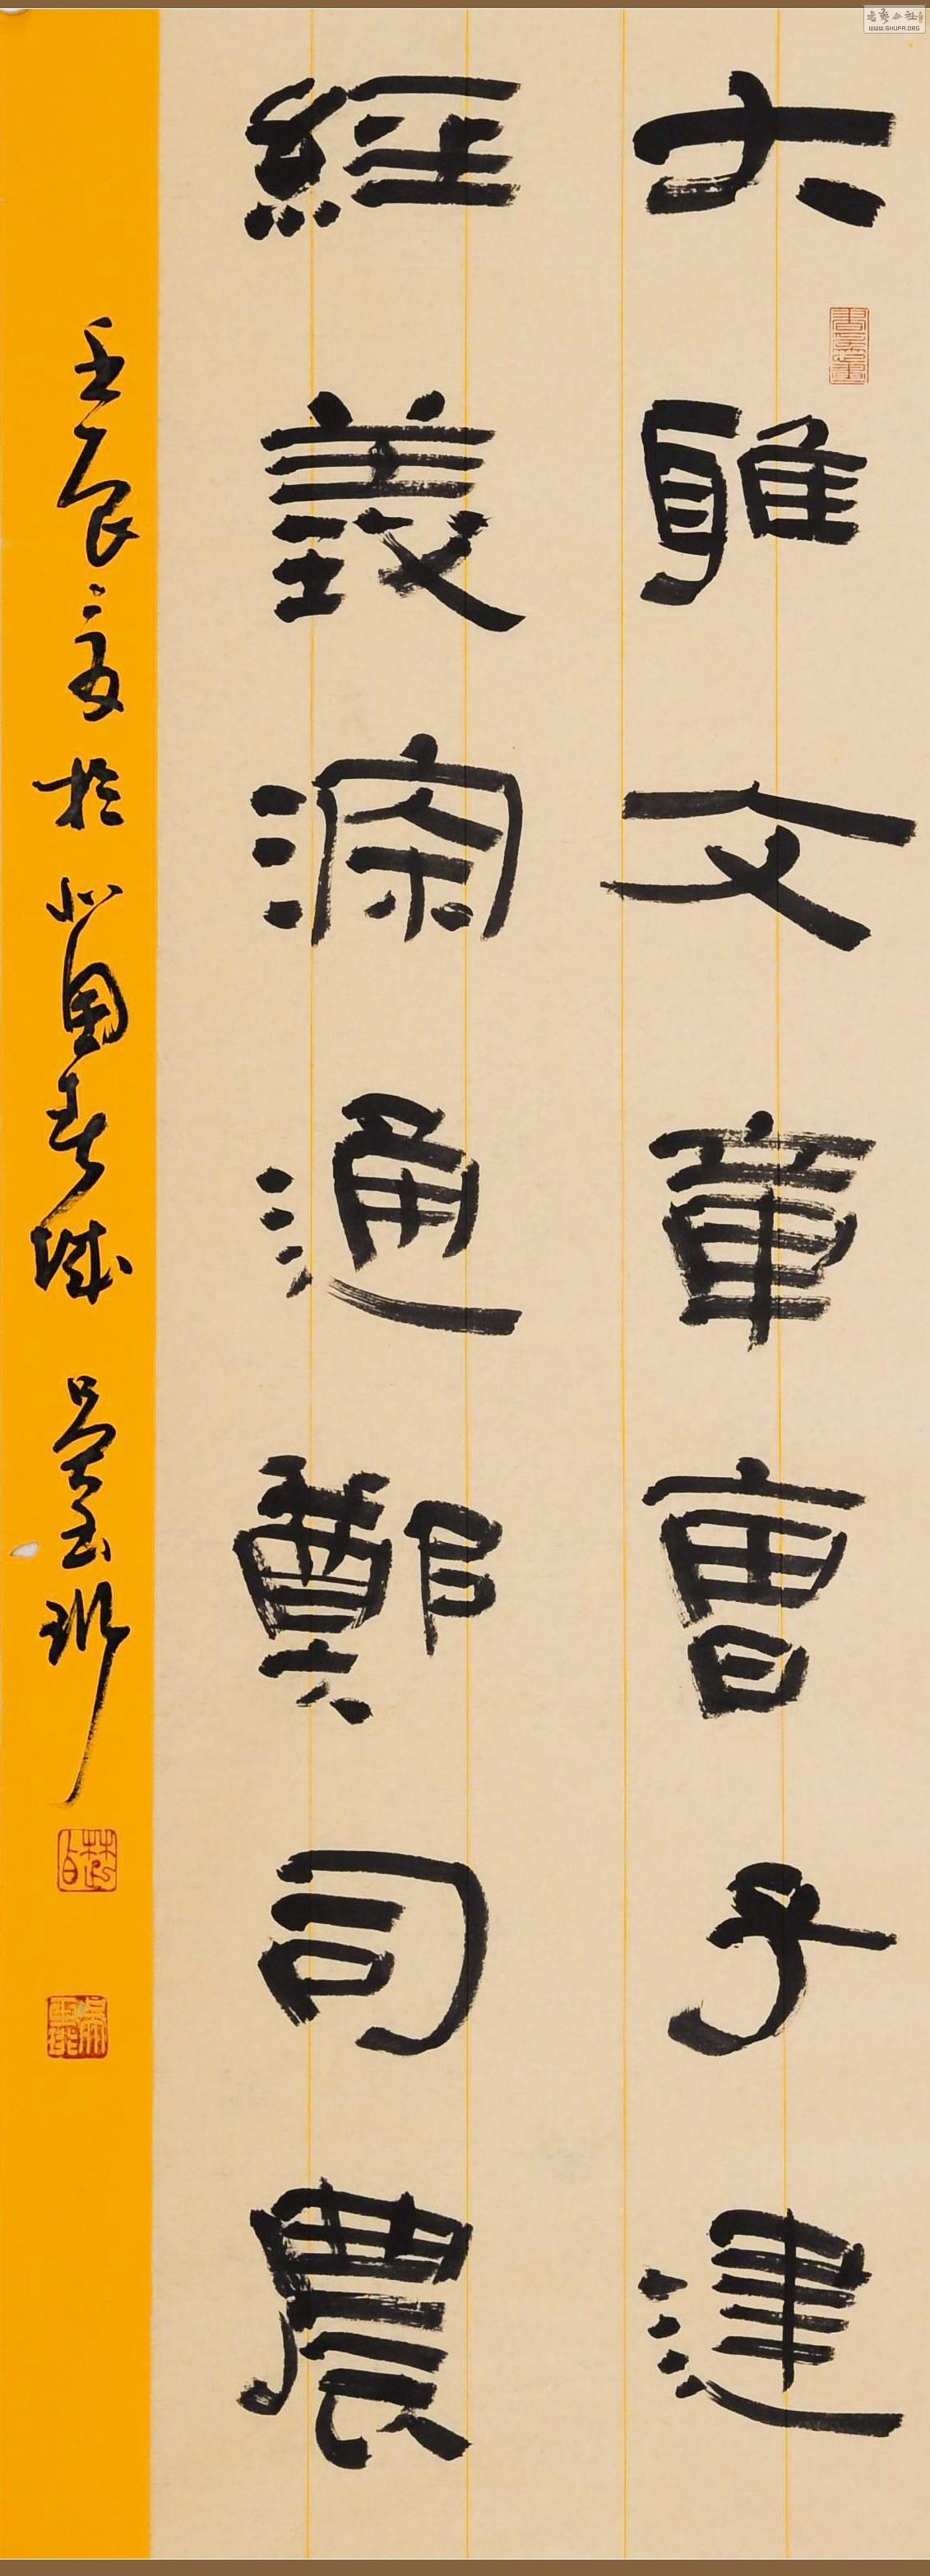 大雅文章曹子建
經義深通鄭司農
壬辰夏於北国春城 吴玉
书艺公社
WWW.SHUFA.ORG